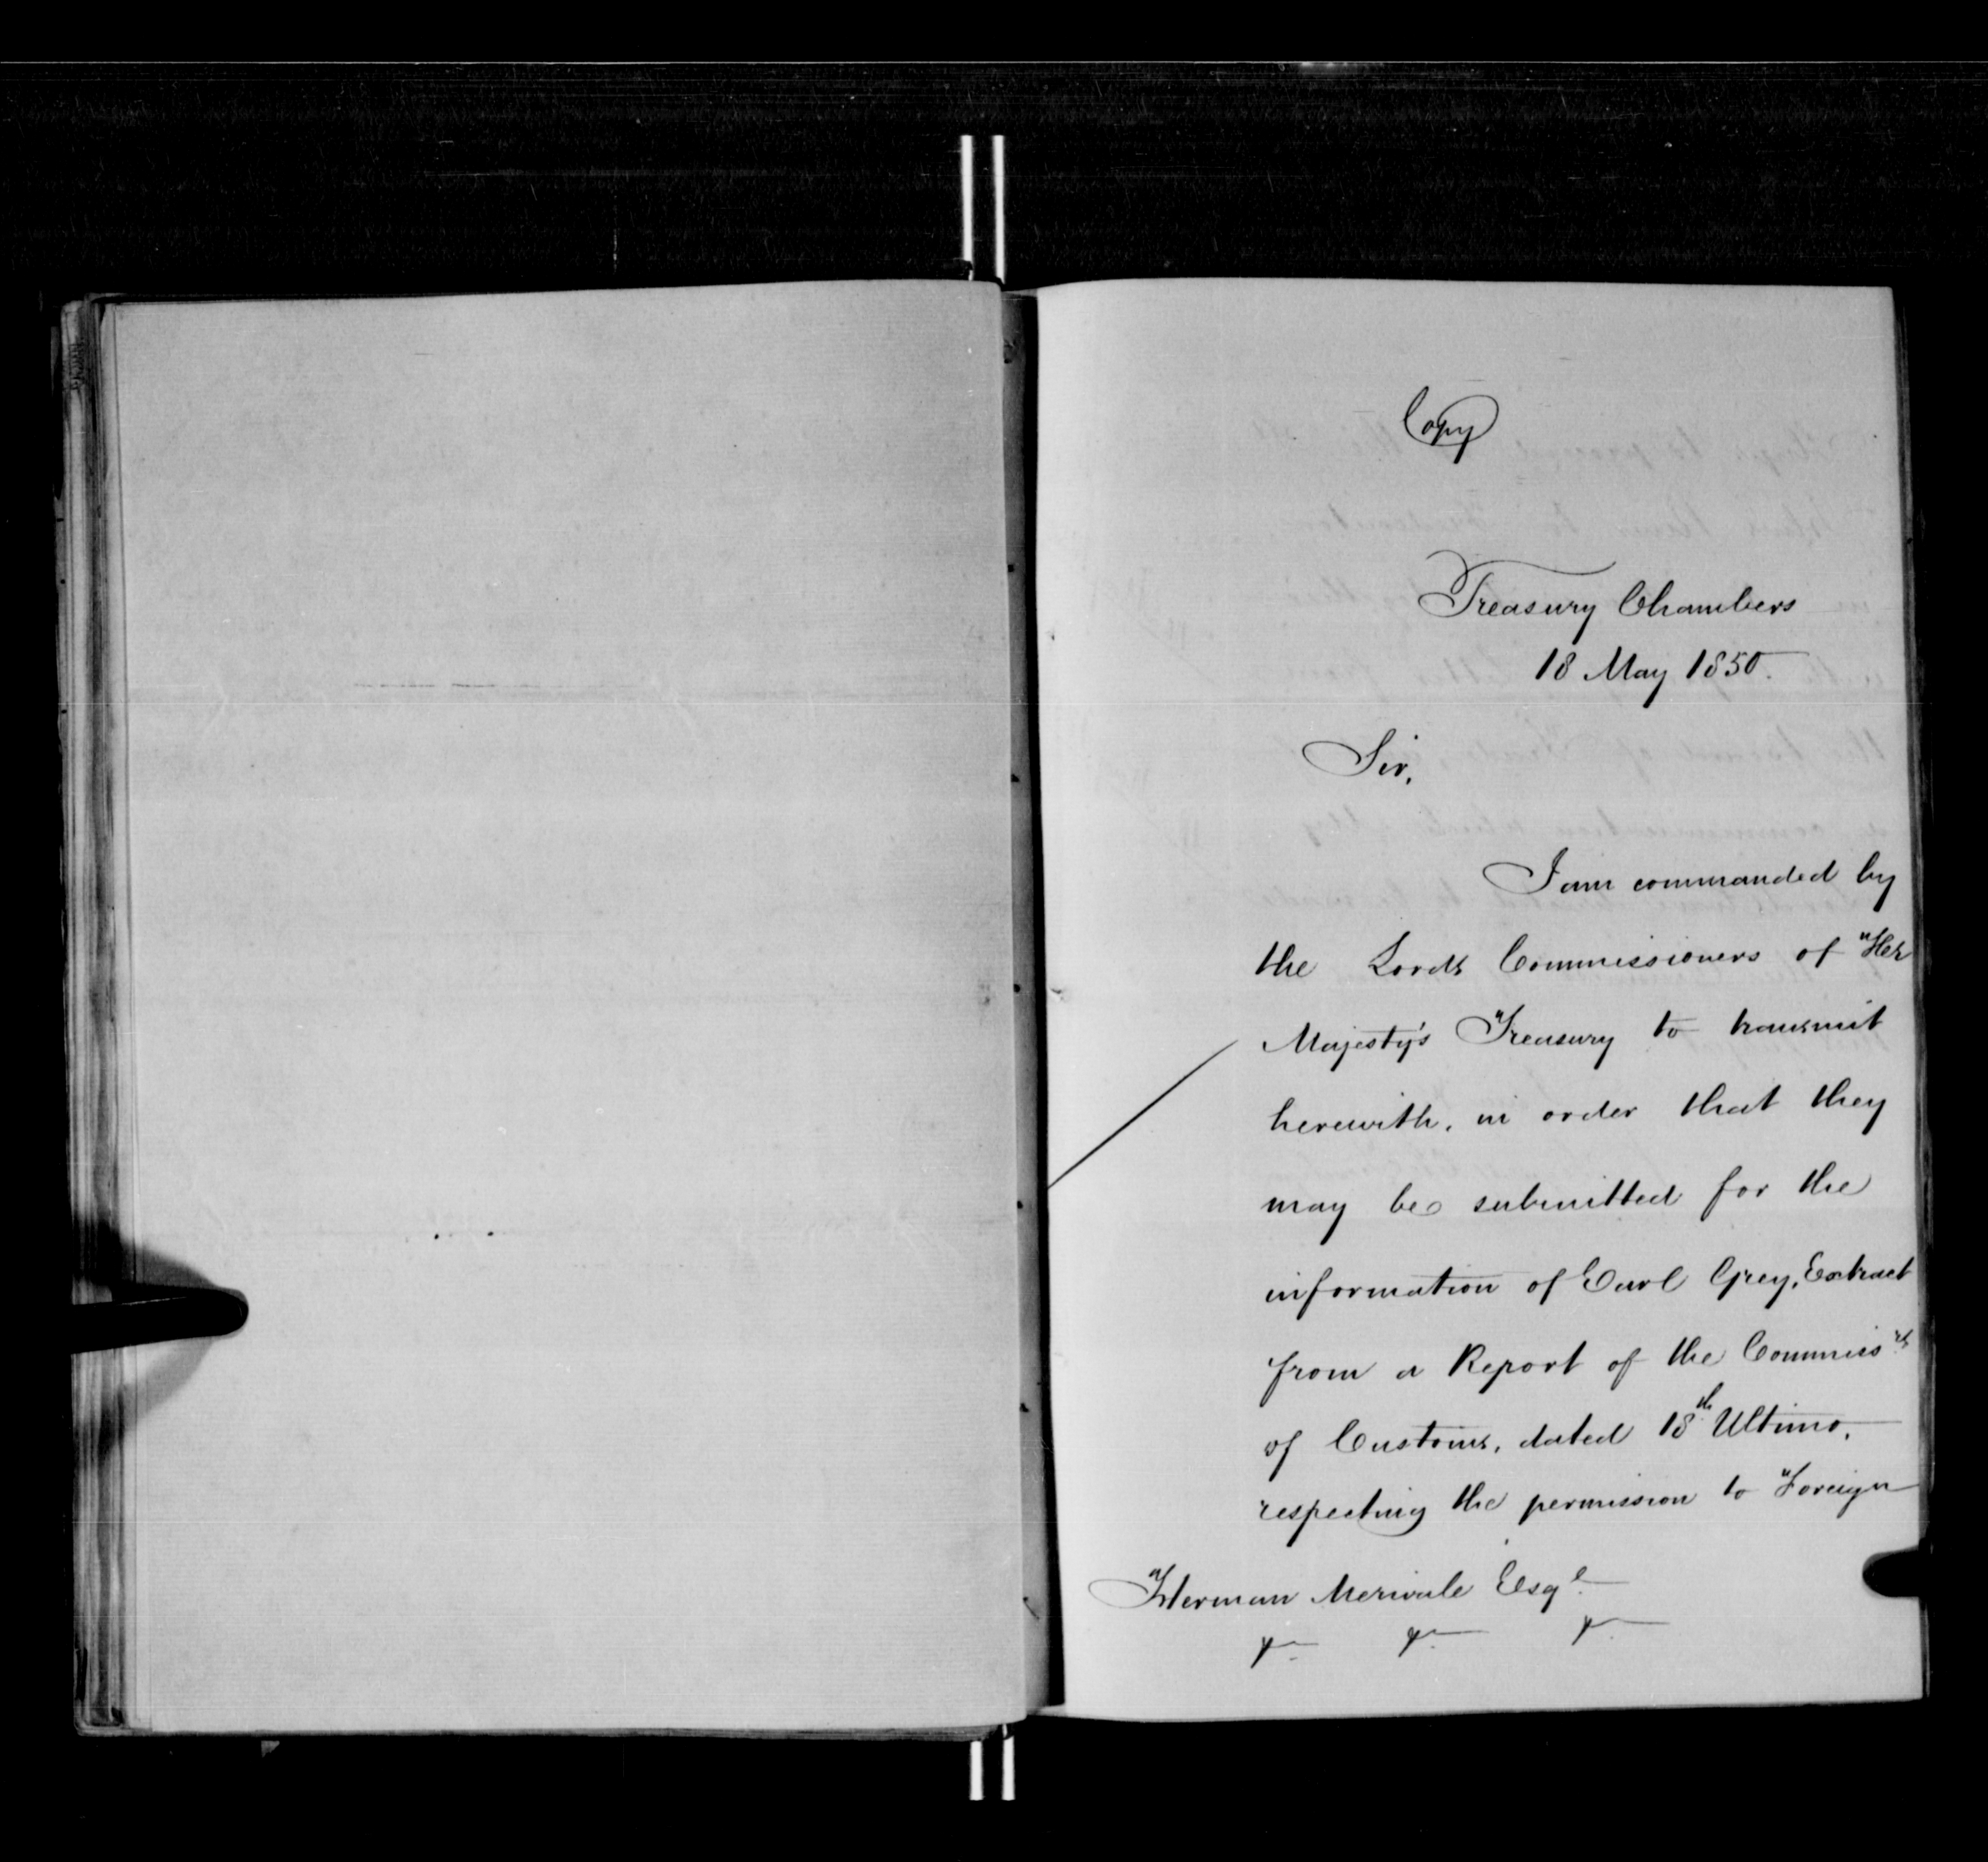 Copy
Treasury Chambers
18 May 1850.
Sir,
I am commanded by
the Lords Commissioners of Her
Majesty's Treasury to transmit
herewith, in order that they
may be submitted for the
information of Earl Grey, Extract
from a Report of the Commiss.rs
of Customs, dated 18th Ultimo,
respecting the permission to Foreign
Herman Merivale Esqe.